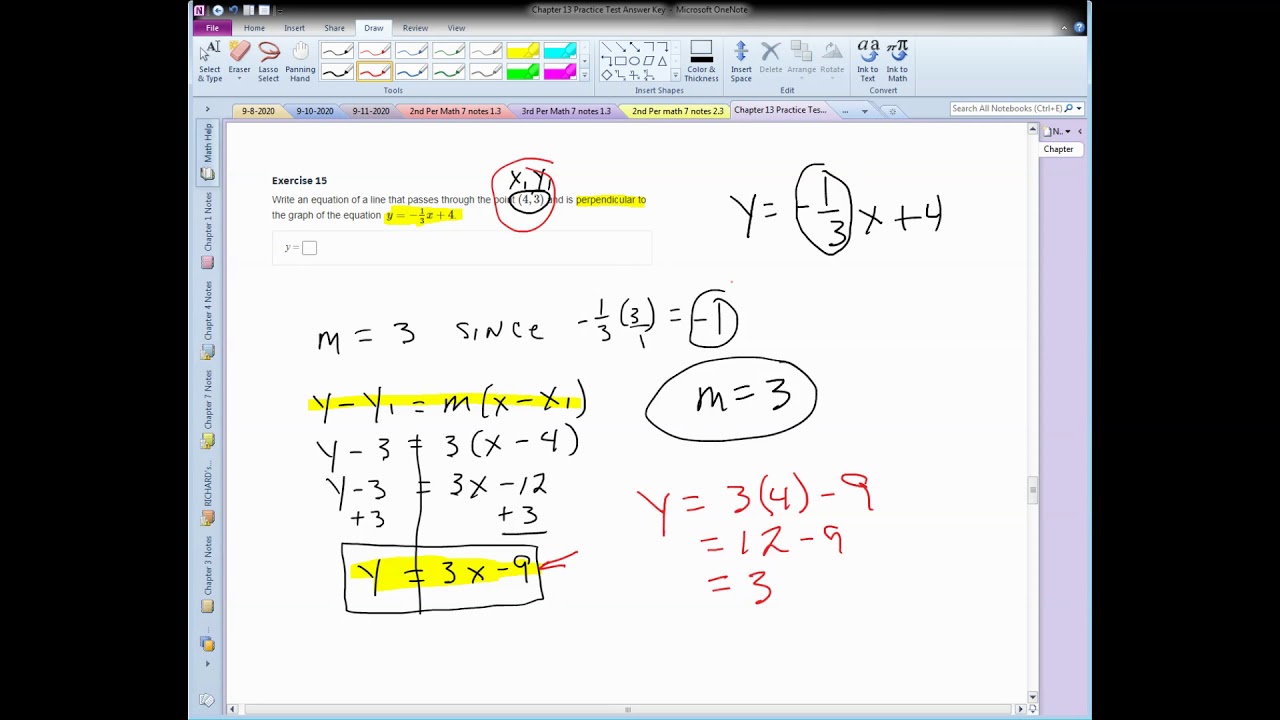 Chapter 13 Practice Test Answer Key - Microsoft OneNote
File Home Insert Share Draw Review View
Select & Type
Eraser
Lasso Select
Panning Hand
Color & Thickness
Insert Space
Delete
Arrange
Rotate
Ink to Text
Ink to Math
Tools
Insert Shapes
Edit
Convert
9-8-2020 9-10-2020 9-11-2020 2nd Per Math 7 notes 1.3 3rd Per Math 7 notes 1.3 2nd Per math 7 notes 2.3 Chapter 13 Practice Tes... ...
Search All Notebooks (Ctrl+E)
N..
Chapter
Math Help
Chapter 1 Notes
Chapter 4 Notes
Chapter 7 Notes
RICHARD's...
Chapter 3 Notes
Exercise 15
x₁ y₁
Write an equation of a line that passes through the point (4, 3) and is perpendicular to
the graph of the equation y = -1/3 x + 4.
y =
y = -1/3 x + 4
m = 3 since -1/3 (3/1) = -1
m = 3
y - y₁ = m(x - x₁)
y - 3 = 3(x - 4)
y - 3 = 3x - 12
+3 +3
y = 3x - 9
y = 3(4) - 9
= 12 - 9
= 3